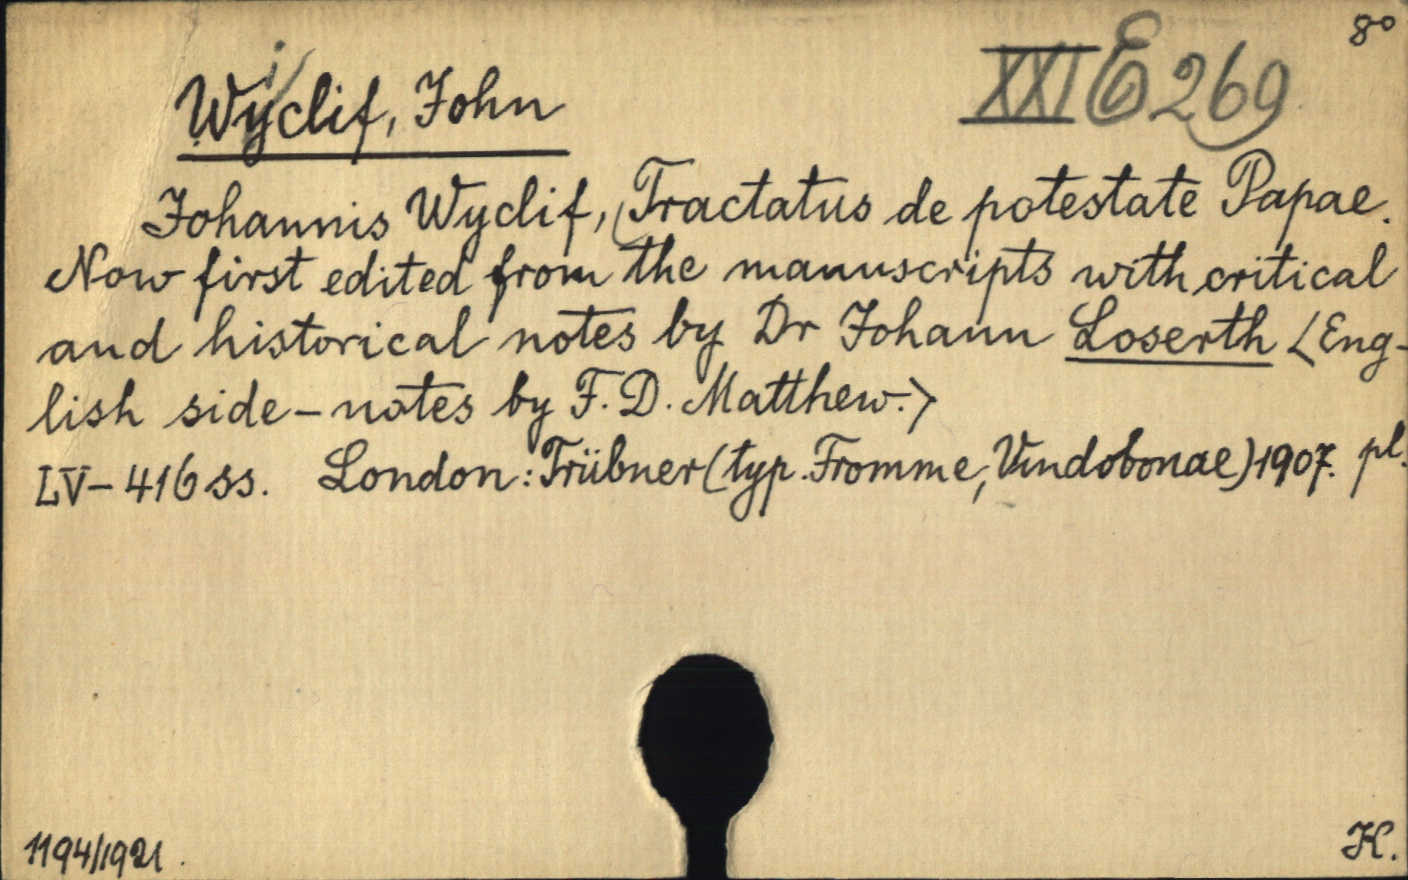 8°
XXI E 269
Wyclif, John
Johannis Wyclif, Tractatus de potestate Papae.
Now first edited from the manuscripts with critical
and historical notes by Dr Johann Loserth <Eng-
lish side-notes by F. D. Matthew.>
LV-416 ss. London: Trübner (typ. Fromme, Vindobonae) 1907. pl.
1194/1921.
K.